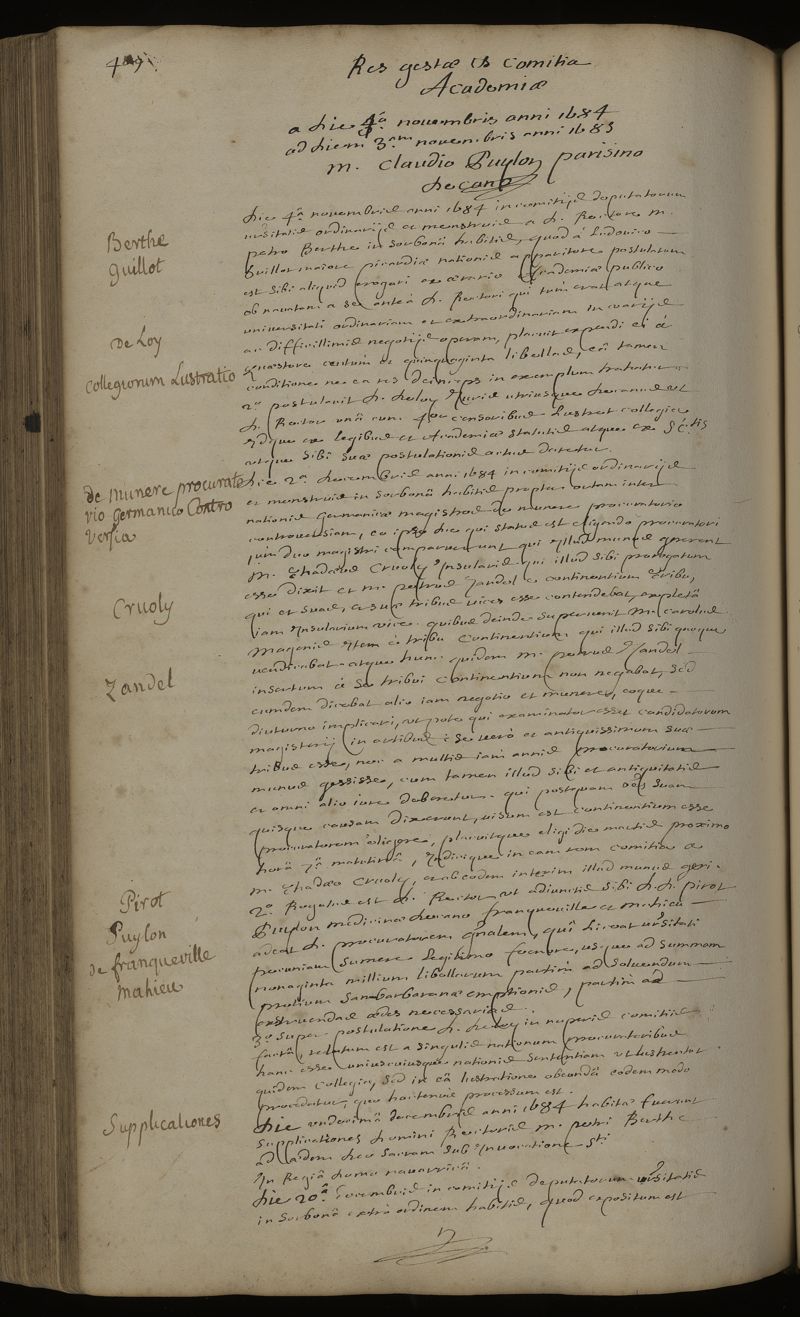 Res gestæ et comitia
Academiæ
a die 4.ª novembris anni 1684
ad diem 3.am novembris anni 1685
M. Claudio Puylon parisino
decano
Berthe
Guillot
De Loy
Collegiorum Lustratio
de munere procurato
rio germanico Contro
versia
Cruoly
Zandel
Pirot
Puylon
de franqueville
Mahieu
Supplicationes
die 4.ª novembris anni 1684 in comitijs deputatorum
ordinarijs et menstruis a d. Rectore m.
petro Berthe in Sorbonâ habitis, quod a Ludovico
Guillot maiore picardicæ nationis apparitore postulatum
est sibi aliquid erogari ex ærario Academiæ publico
ob navatam a se anteà d. Rectori qui tum erat atque
universitati ordinariam et extraordinariam in varijs
ac difficillimis negotijs operam, placuit expendi ei a
quæstore centum et quinquaginta libellas, eâ tamen
conditione ne ea res deinceps in exemplum trahatur.
2.º postulavit d. deloy Iuris utriusque decanus ut
d. Rector unà cum 4or censoribus Lustret collegia
idque ex legibus et Academiæ statutis atque ex
utque sibi suæ postulationis actus daretur.
die 2.ª decembris anni 1684 in comitijs ordinarijs
et menstruis in Sorbonâ habitis propter ortam inter
nationis germanicæ magistros de munere procuratorio
controversiam, eo ipso die qui status est eligendo procuratori
duo magistri comparuerunt qui illud munus gererent
M. Thadæus Cruoly Insularis qui illud sibi prorogatum
esse dixit et m. petrus Zandel e continentium tribu,
qui et suas, et suæ tribus vices esse contendebat, expletâ
iam Insularium vice. quibus deinde supervenit M. Carolus
Magenis item è tribu Continentium qui illud sibi quoque
vendicabat. atque hunc quidem m. petrus Zandel
insertum è sua tribui Continentium non negabat, sed
eumdem dicebat alio iam negotio et munere, eoque
diuturno implicari, ut pote qui examinator esset candidatorum
magisterij in artibus: se verò et antiquissimum suæ
tribus esse, nec a multis iam annis procuratorium
munus gessisse, cum tamen illud sibi et antiquitatis
et omni alio iure deberetur. qui postquam suam
quisque causam dixerunt, visum est continentium esse
procuratorem eligere, placuitque eligi die martis proximo
horâ 7.ª matutinâ, indicique in eam rem comitia a
m. Thadæo Cruoly, et ab eodem interim illud munus geri.
2.º Rogatus est d. Rector ut adiunctis sibi d.d. Pirot
Puylon medicinæ decano franqueville et Mahieu
adeat d. procuratorem gñalem, quî liceat
pecuniam sumere legitimo fœnore, usque ad summam
nonaginta millium libellarum partim ad solvendum
pretium Sanbarbaranæ emptionis, partim ad
extruendas ædes necessarias.
3.º super postulatione d. deloy in nuperis comitijs
factâ, relatum est a singulis nationum procuratoribus
hanc esse uniuscuiusque nationis sententiam ut lustrentur
quidem collegia, sed in eâ lustratione obeundâ eodem modo
procedatur, quo hactenus processum est.
die undecimâ decembris anni 1684 habitæ fuerunt
supplicationes domini Rectoris m. petri Berthe
ad ædem deo sacram sub Invocatione sti
In Regiâ domo navarricâ.
die 20.ª decembris in comitijs deputatorum
in Sorbonâ extrà ordinem habitis, quod expositum est